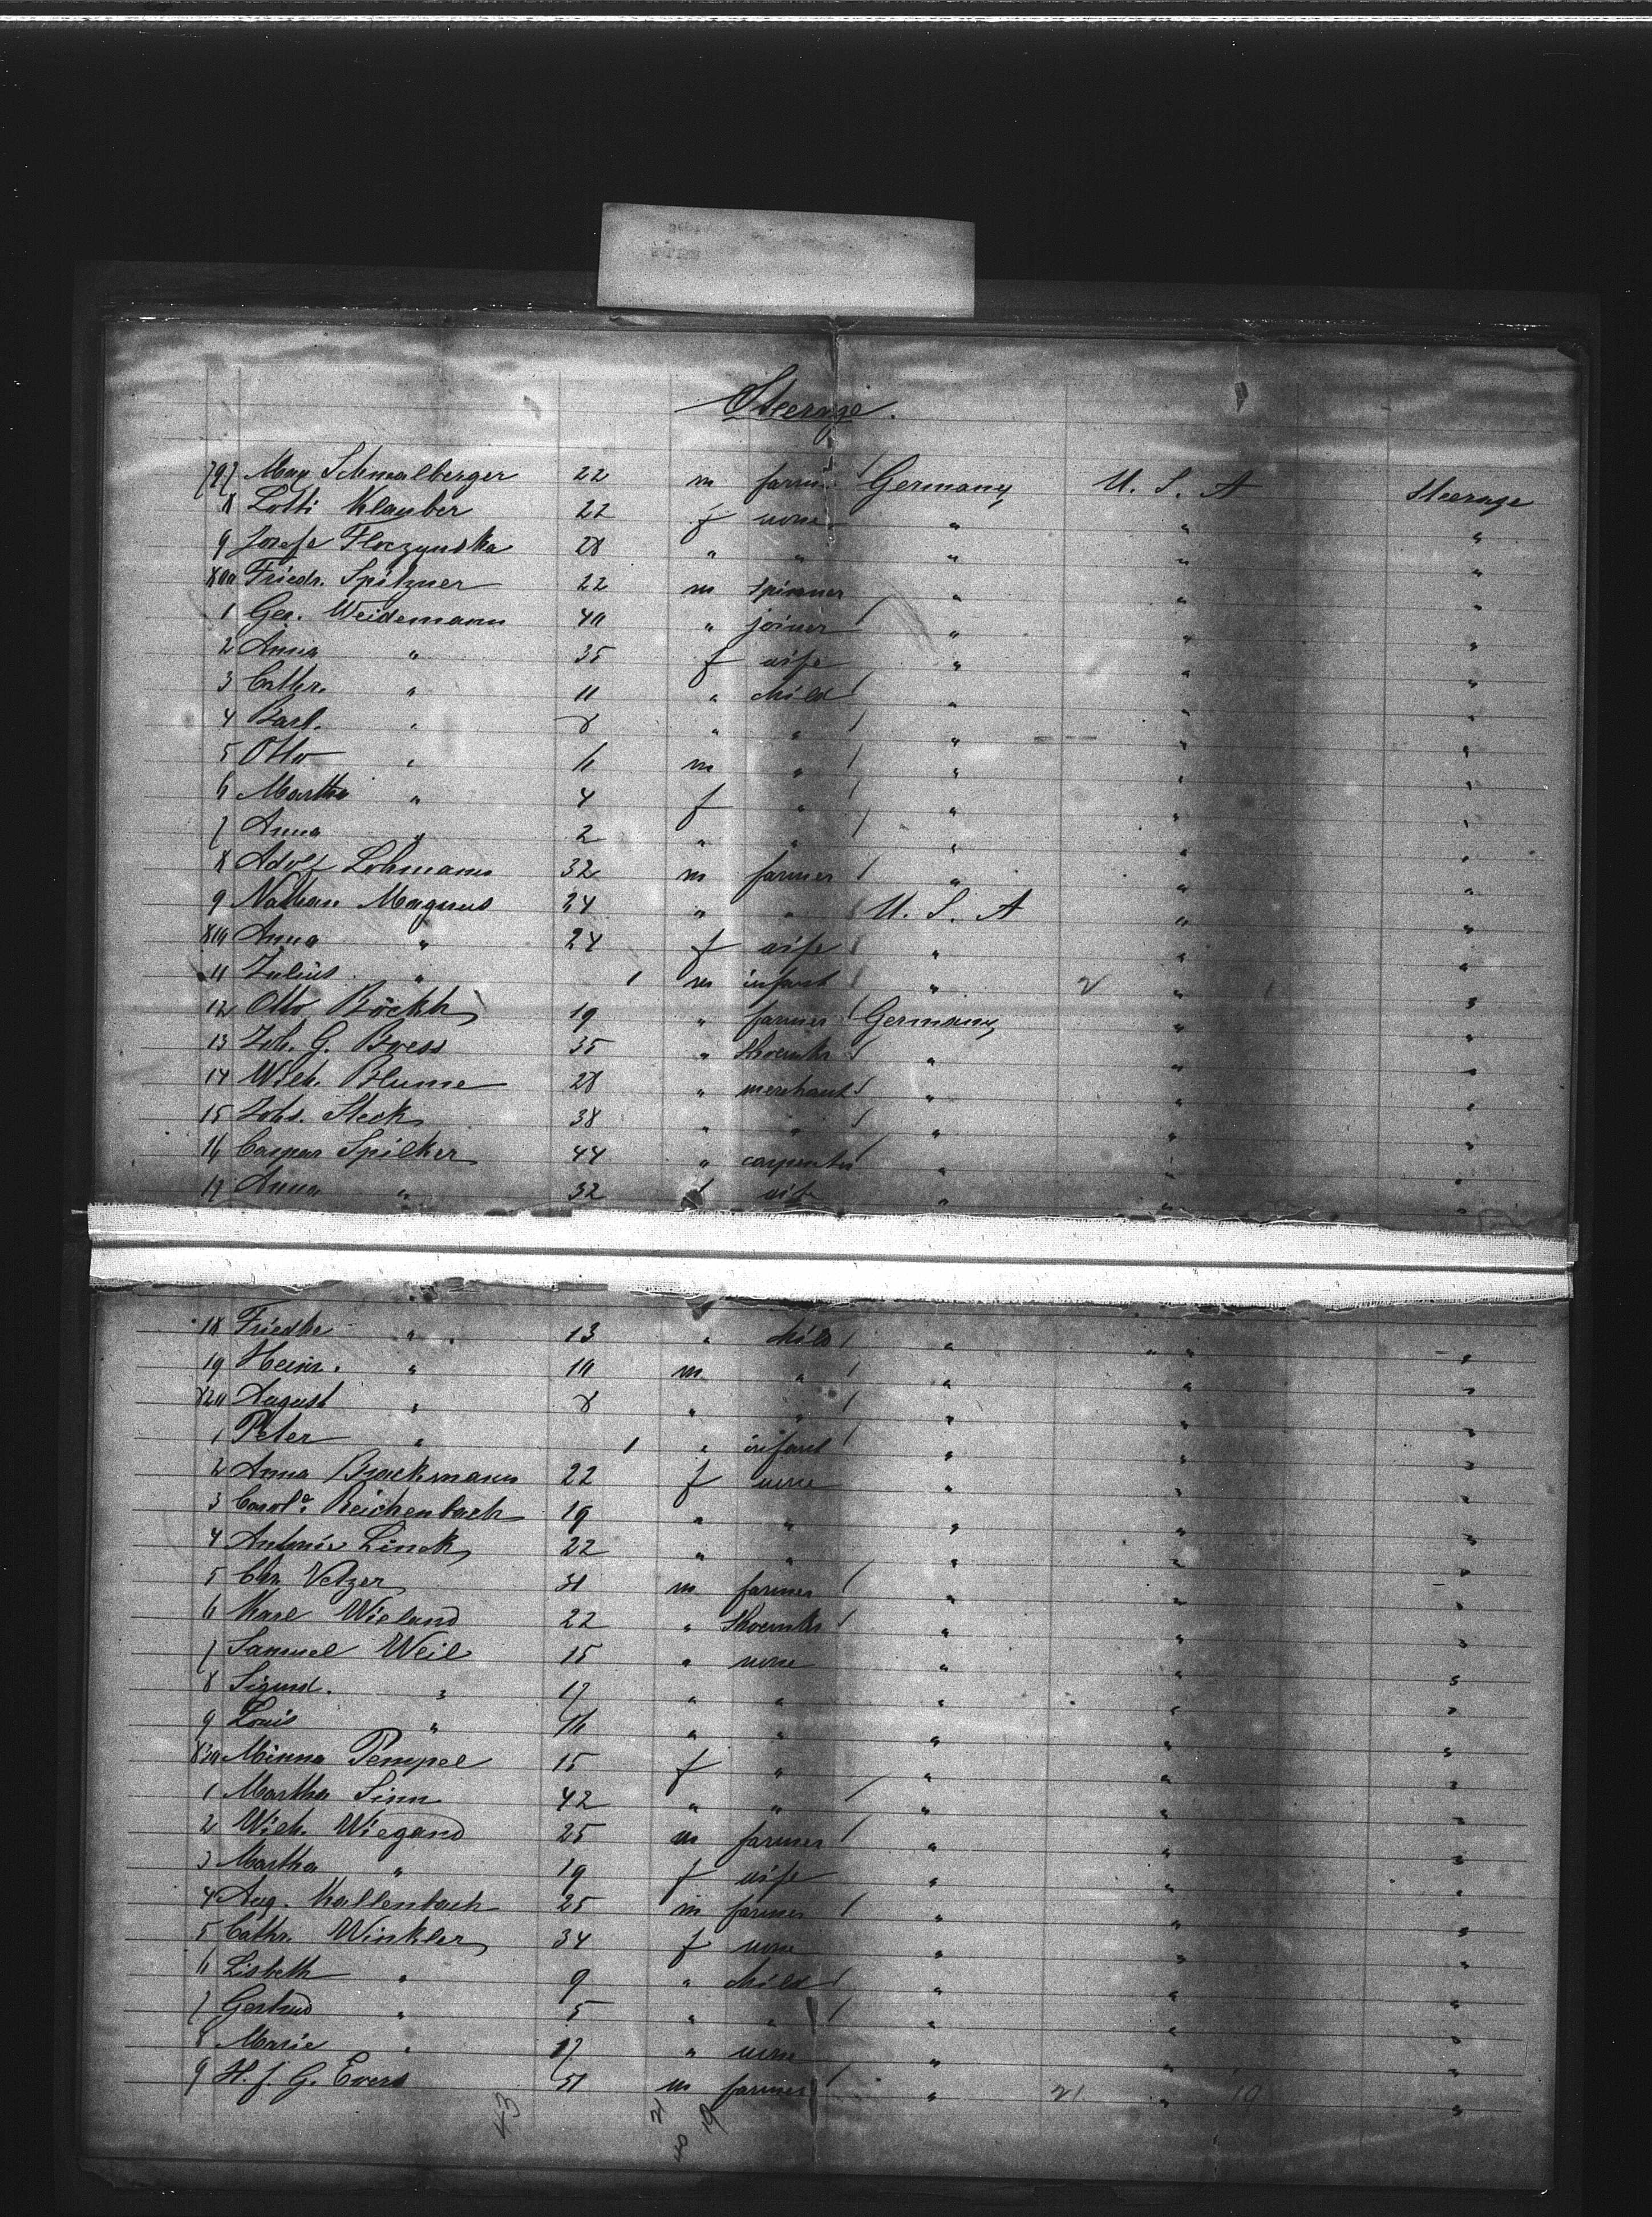 Steerage.
797 Max Schmalberger 22 m farmer / Germany U. S. A Steerage
8 Lotti Klauber 22 f none " " "
9 Josefa Floczynska 28 " " " " "
800 Friedr. Spitzner 22 m spinner " " "
1 Geo. Weidemann 40 " joiner / " " "
2 Anna " 35 f wife " " "
3 Cathr. " 11 " child / " " "
4 Barb. " 8 " " / " " "
5 Otto " 6 m " / " " "
6 Martha " 4 f " / " " "
7 Anna " 2 " " / " " "
8 Adolf Lohmann 32 m farmer / " " "
9 Nathan Magnus 34 " " U. S. A " "
810 Anna " 24 f wife " " "
11 Julius " 1 m infant " 2 " 1 "
12 Otto Böckh 19 " farmer / Germany " "
13 Joh. G. Bress 35 " shoemkr / " " "
14 Wilh. Blume 28 " merchant / " " "
15 Johs. Steck 38 " " / " " "
16 Caspar Spilker 44 " carpenter / " " "
17 Anna " 32 f wife " " "
18 Friedke " 13 " child / " " "
19 Heinr. " 10 m " / " " "
820 August " 8 " " / " " "
1 Peter " 1 " infant / " " "
2 Anna Brackmann 22 f none " " "
3 Carole. Reichenbach 19 " " " " "
4 Antonie Linck 22 " " " " "
5 Chr. Velzer 31 m farmer / " " "
6 Karl Wieland 22 " shoemkr / " " "
7 Samuel Weil 15 " none " " "
8 Sigmd. " 17 " " " " "
9 Louis " 16 " " " " "
830 Minna Pempel 15 f " " " "
1 Martha Sinn 42 " " / " " "
2 Wilh. Wiegand 25 m farmer / " " "
3 Martha " 19 f wife " " "
4 Aug. Kallenbach 25 m farmer / " " "
5 Cathr. Winkler 34 f none " " "
6 Lisbeth " 9 " child / " " "
7 Gertrud " 5 " " / " " "
8 Marie " 17 " none " " "
9 H. J. G. Evers 51 m farmer / " 21 " 19 "
43 21 19